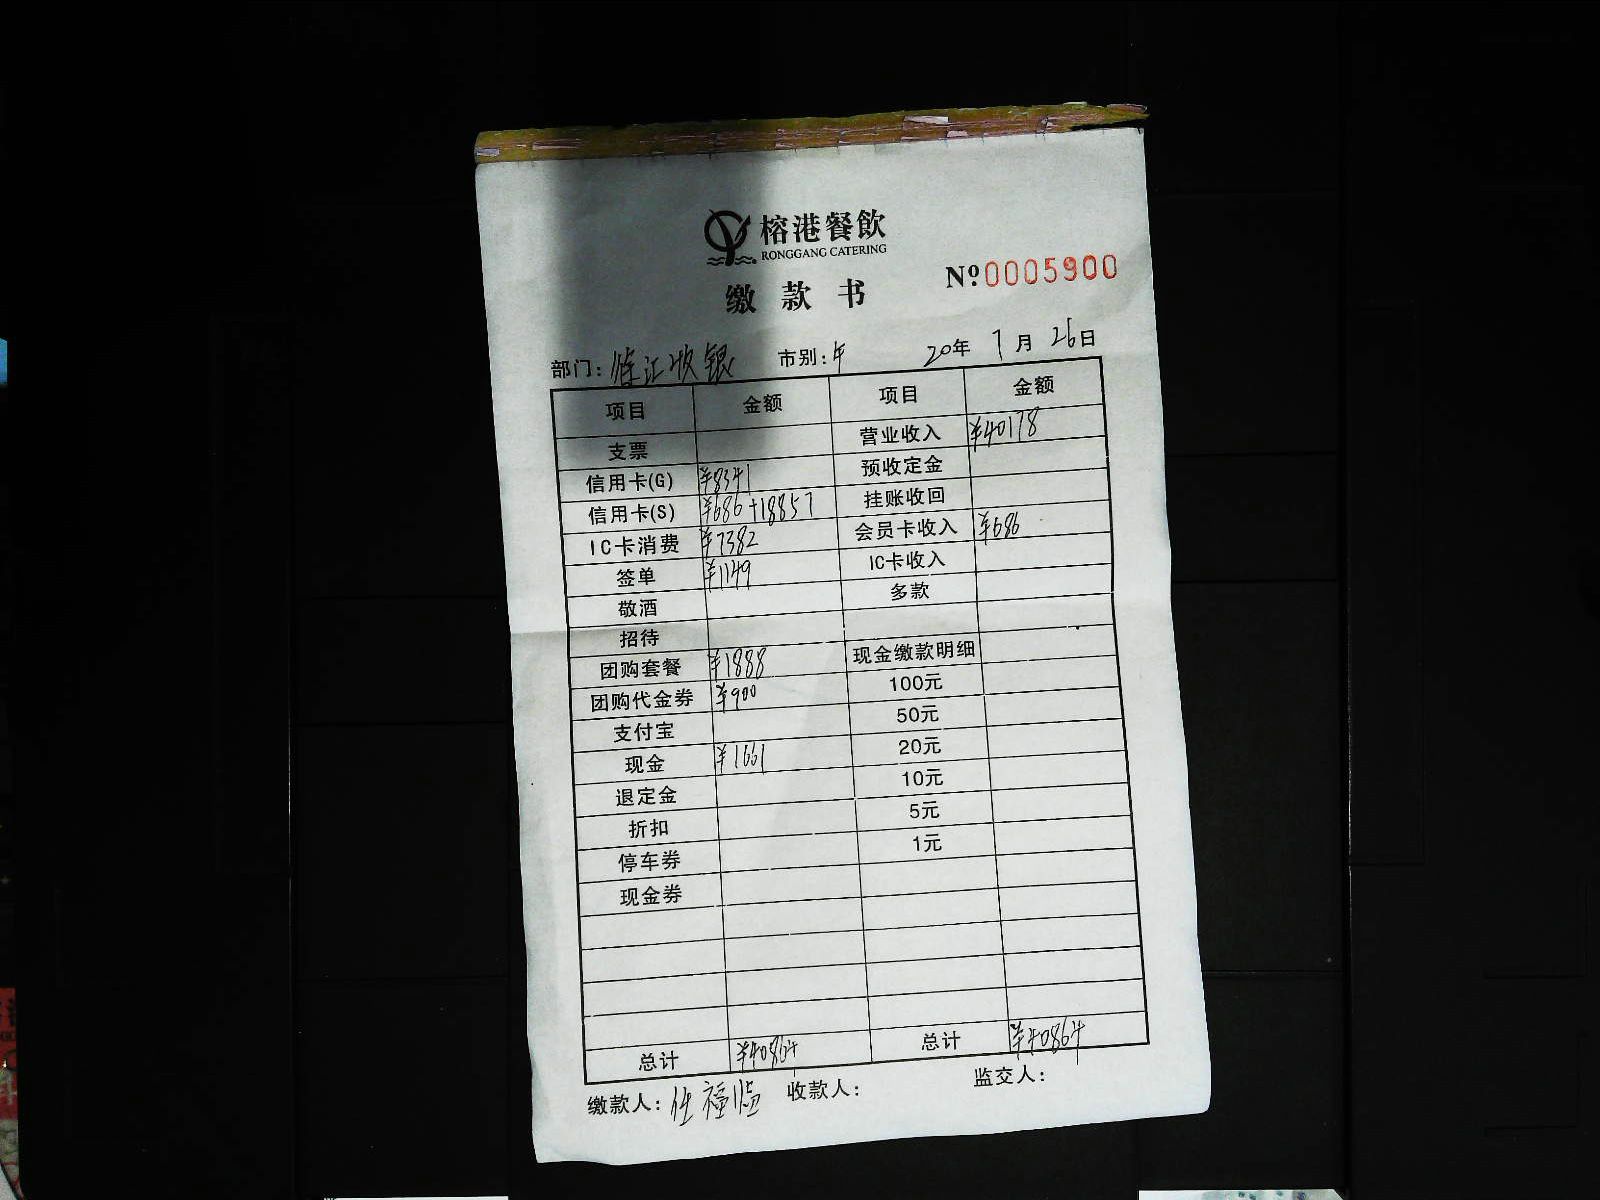 榕港餐飲
RONGGANG CATERING
缴款书
Nº0005900
部门:徐汇收银 市别:午 20年7月26日
项目 金额 项目 金额
支票 营业收入 ¥40178
信用卡(G) ¥8341 预收定金
信用卡(S) ¥686+18857 挂账收回
IC卡消费 ¥7382 会员卡收入 ¥686
签单 ¥1149 IC卡收入
敬酒 多款
招待
团购套餐 ¥1888 现金缴款明细
团购代金券 ¥900 100元
支付宝 50元
现金 ¥1661 20元
退定金 10元
折扣 5元
停车券 1元
现金券
总计 ¥40864 总计 ¥40864
缴款人:任福临 收款人: 监交人: